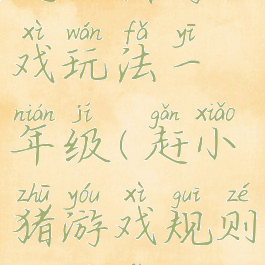 xì wán fǎ yī
戏玩法一
nián jí gǎn xiǎo
年级(赶小
zhū yóu xì guī zé
猪游戏规则